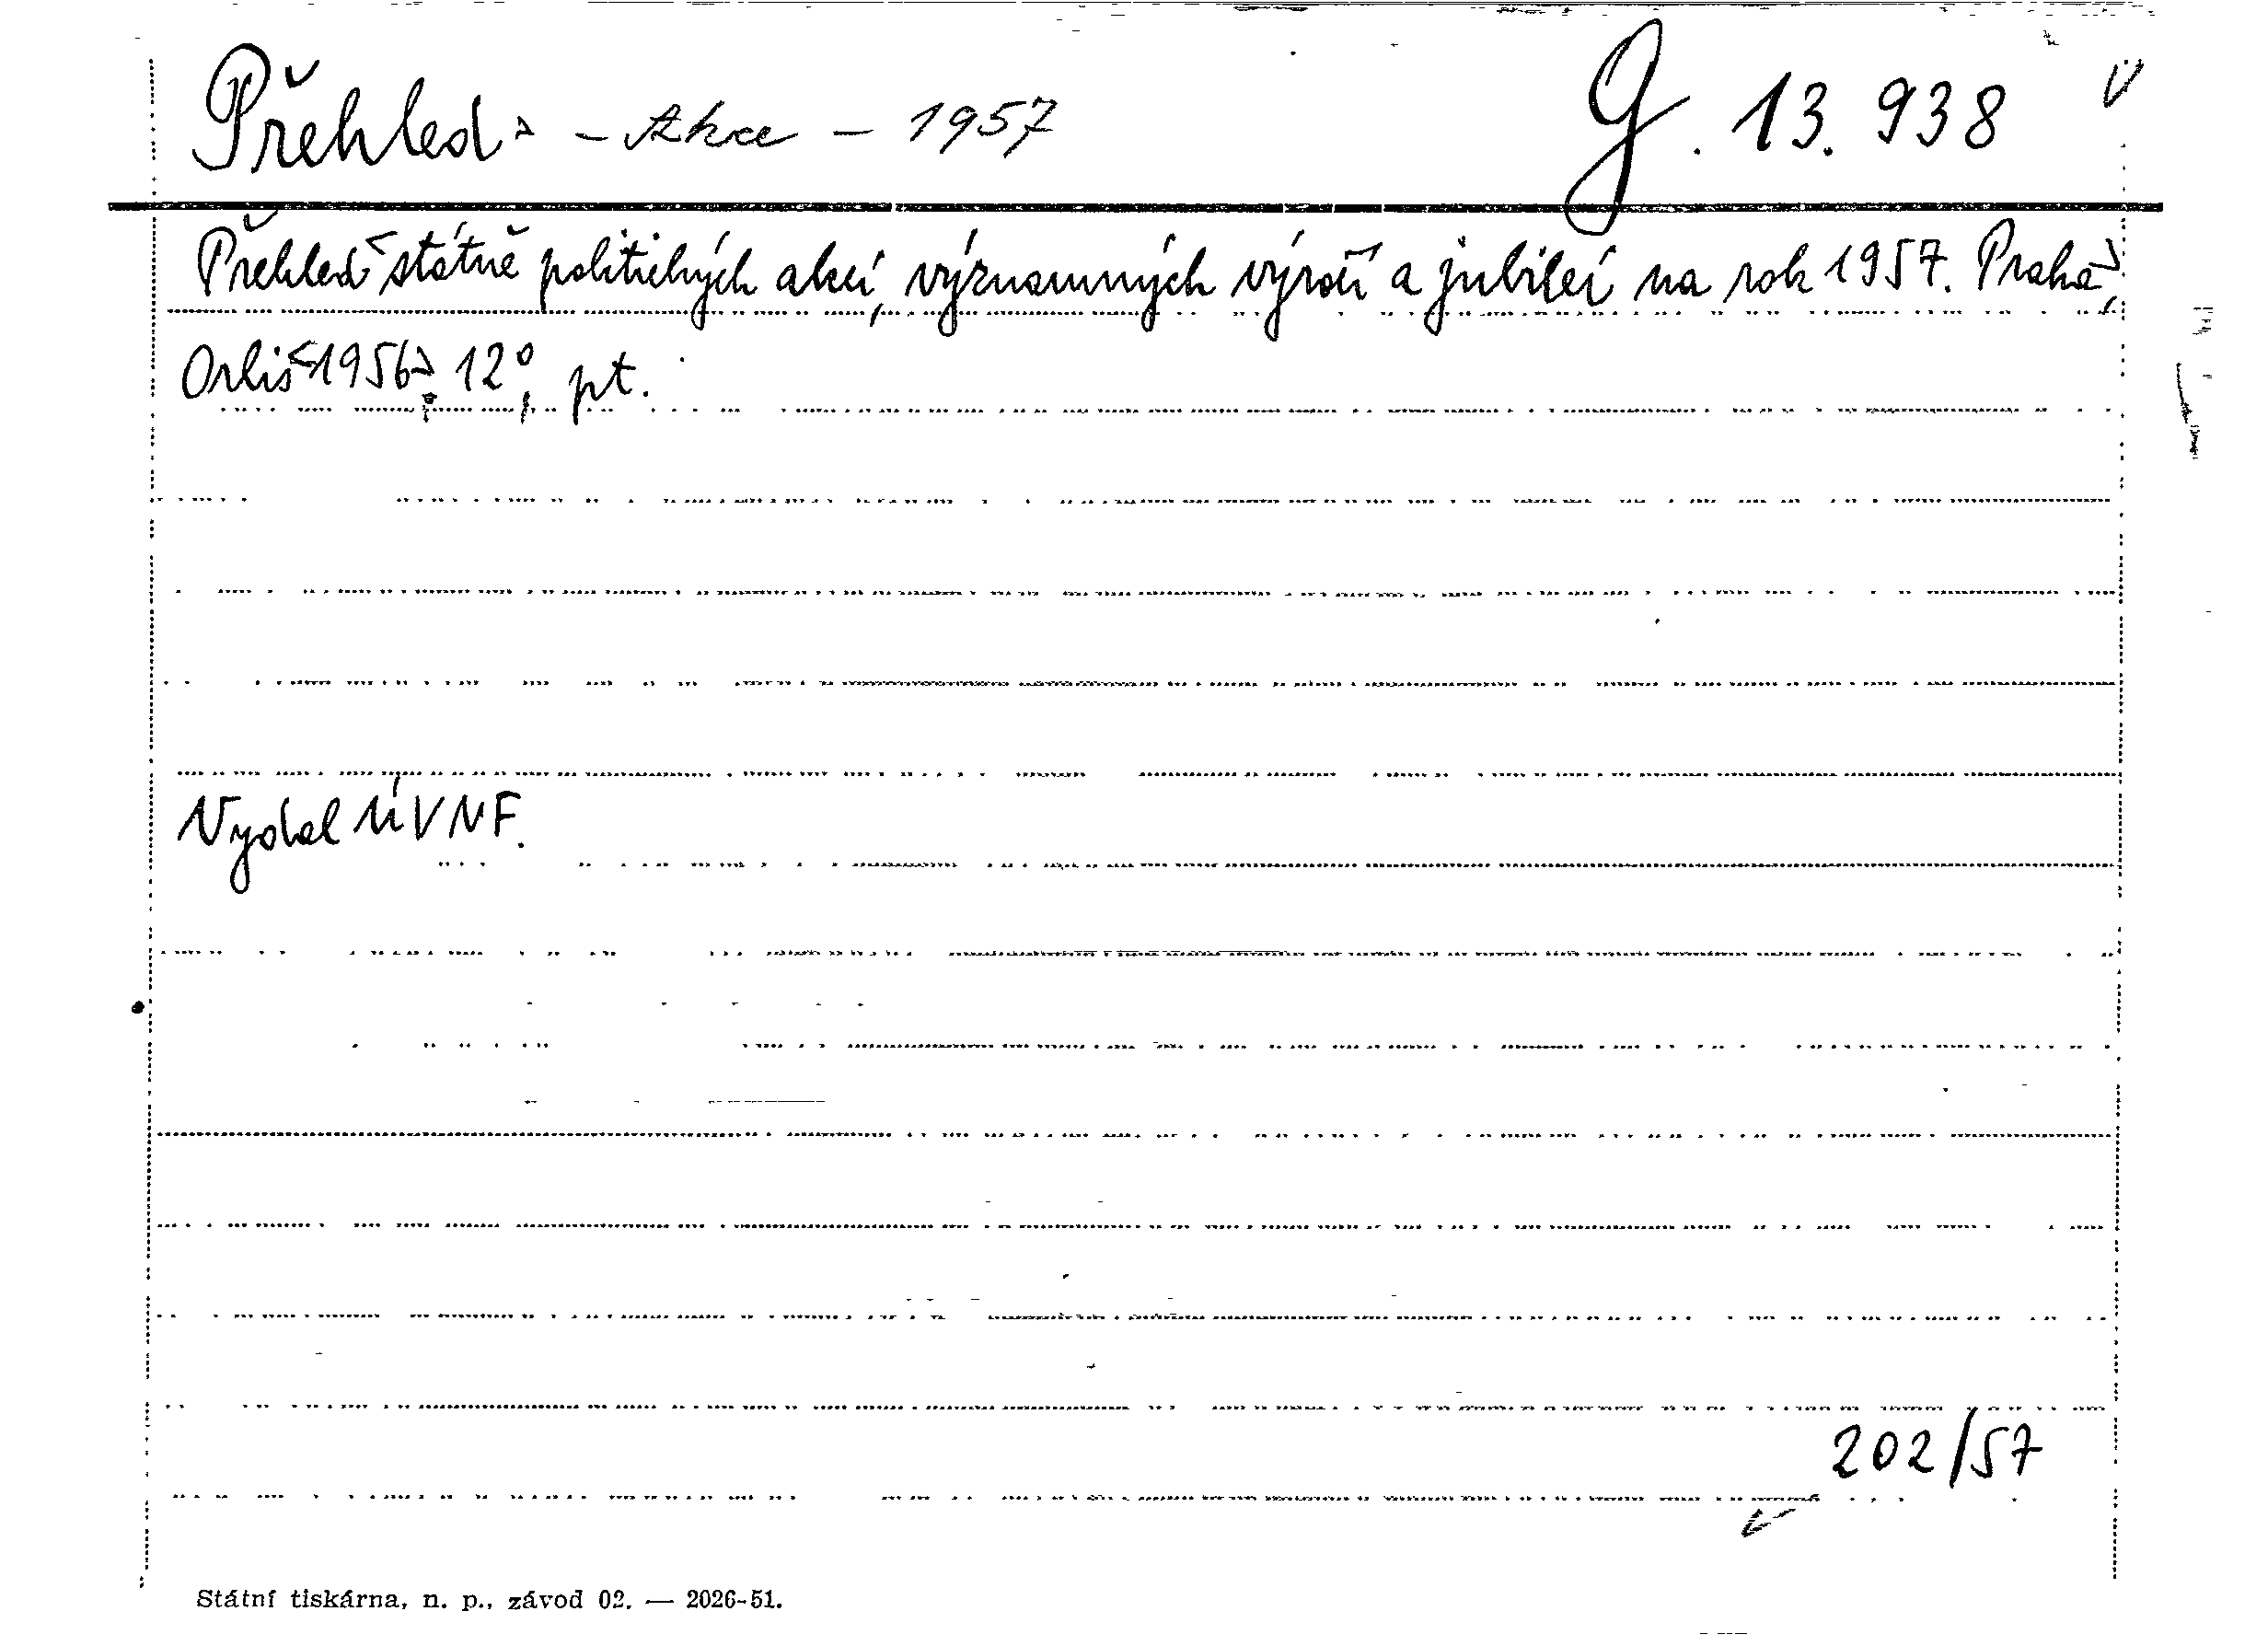 Přehled> – Akce – 1957 G. 13.938
Přehled <státně politických akcí, významných výročí a jubileí na rok 1957. Praha>,
Orbis <1956>. 12°, pt.
Vydal ÚV NF.
202/57
Státní tiskárna, n. p., závod 02. — 2026-51.